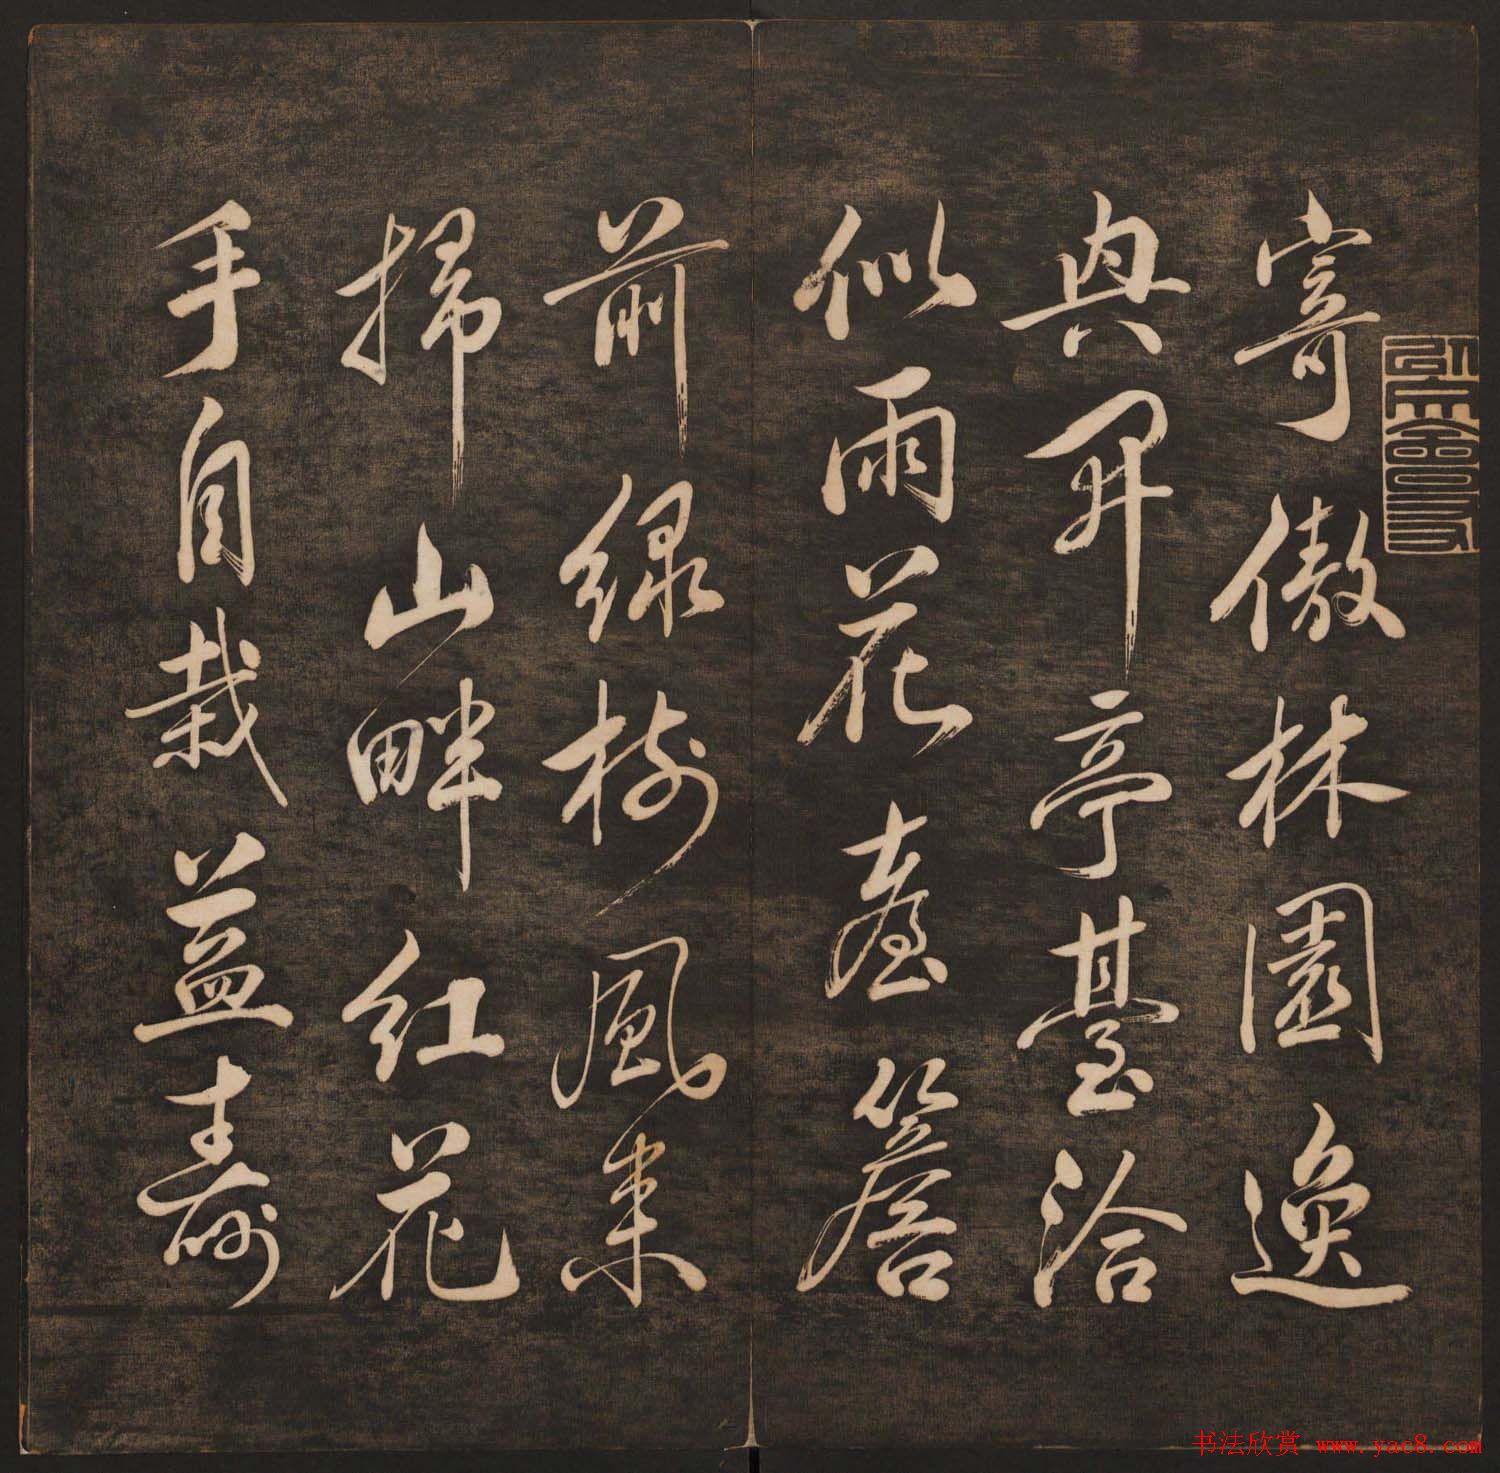 寄傲林園逸
興開亭臺洽
似雨花臺簷
前緑樹風来
掃山畔紅花
手自栽益壽
书法欣赏 www.yac8.com